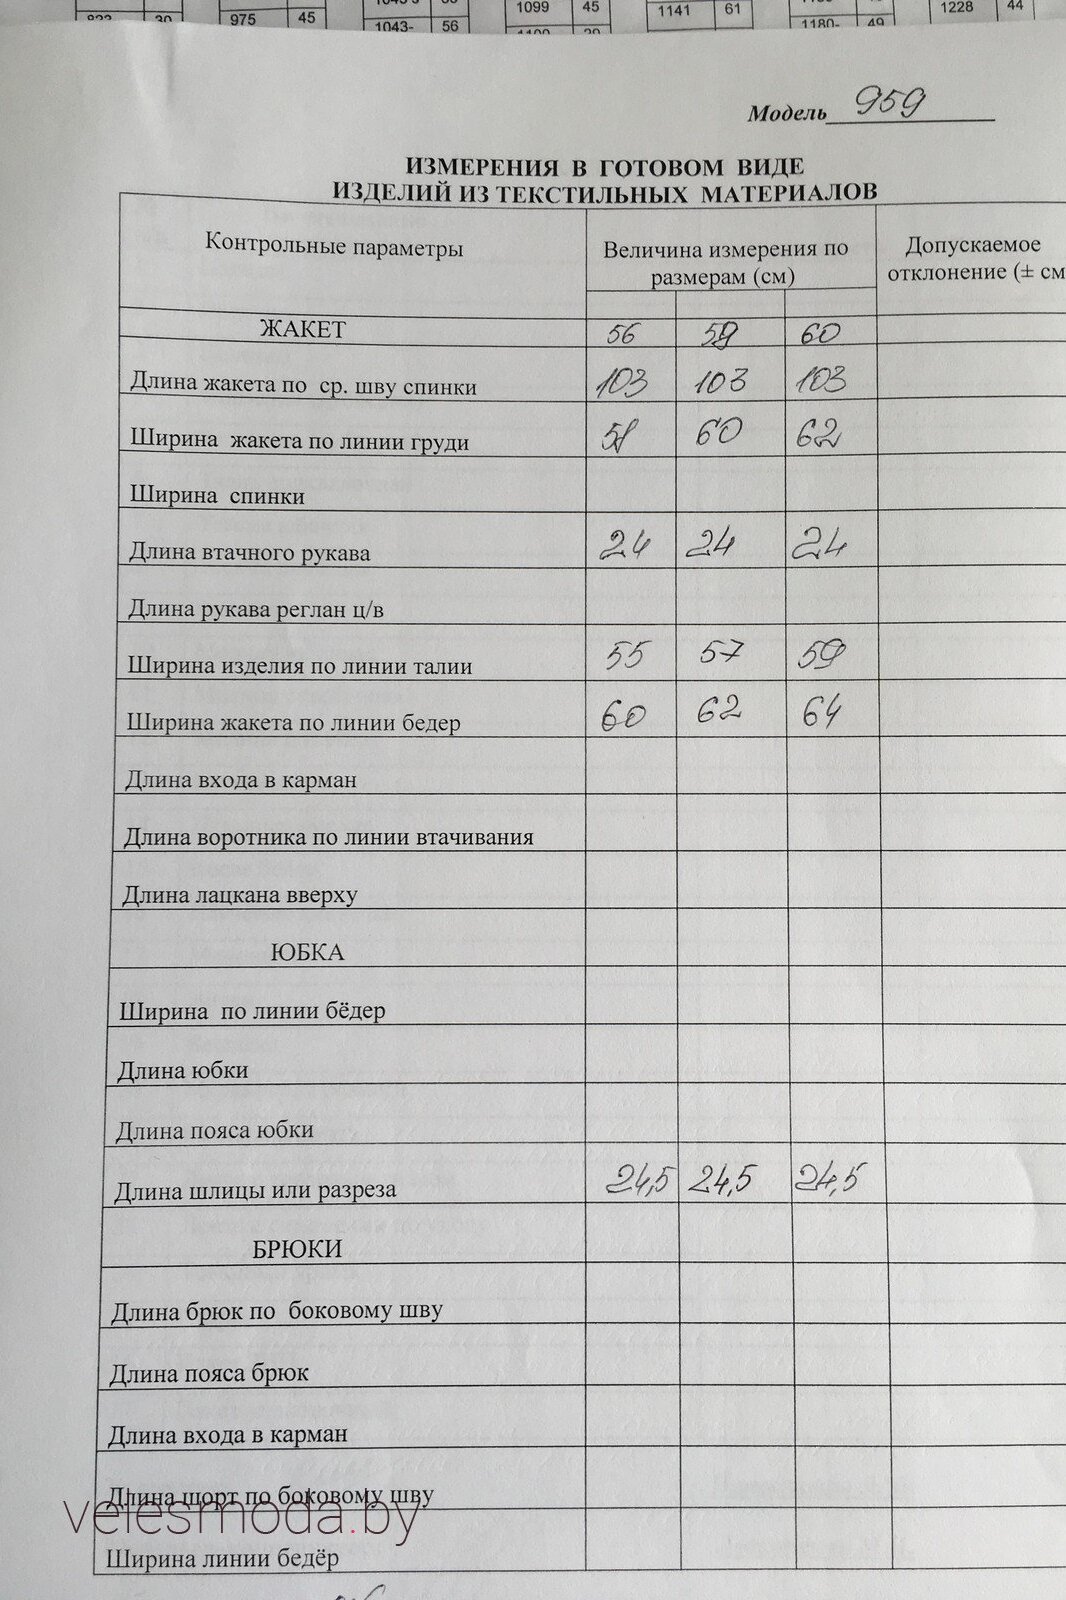 30
975 45
1043- 56
1099 45
1141 61
1180- 49
1228 44
Модель 959
ИЗМЕРЕНИЯ В ГОТОВОМ ВИДЕ
ИЗДЕЛИЙ ИЗ ТЕКСТИЛЬНЫХ МАТЕРИАЛОВ
Контрольные параметры
Величина измерения по
размерам (см)
Допускаемое
отклонение (± см
ЖАКЕТ 56 60
Длина жакета по ср. шву спинки 103 103 103
Ширина жакета по линии груди 58 60 62
Ширина спинки
Длина втачного рукава 24 24 24
Длина рукава реглан ц/в
Ширина изделия по линии талии 55 57 59
Ширина жакета по линии бедер 60 62 64
Длина входа в карман
Длина воротника по линии втачивания
Длина лацкана вверху
ЮБКА
Ширина по линии бёдер
Длина юбки
Длина пояса юбки
Длина шлицы или разреза 24,5 24,5 24,5
БРЮКИ
Длина брюк по боковому шву
Длина пояса брюк
Длина входа в карман
Длина шорт по боковому шву
velesmoda.by
Ширина линии бедёр